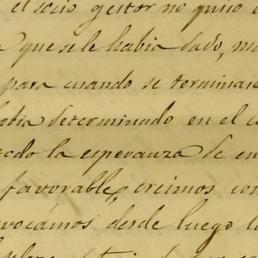 el socio gestor no quiso
que se le habia dado, mu
para cuando se terminase
habia determinado en el c
todo la esperanza de en
favorable, creimos con
vocamos desde luego l